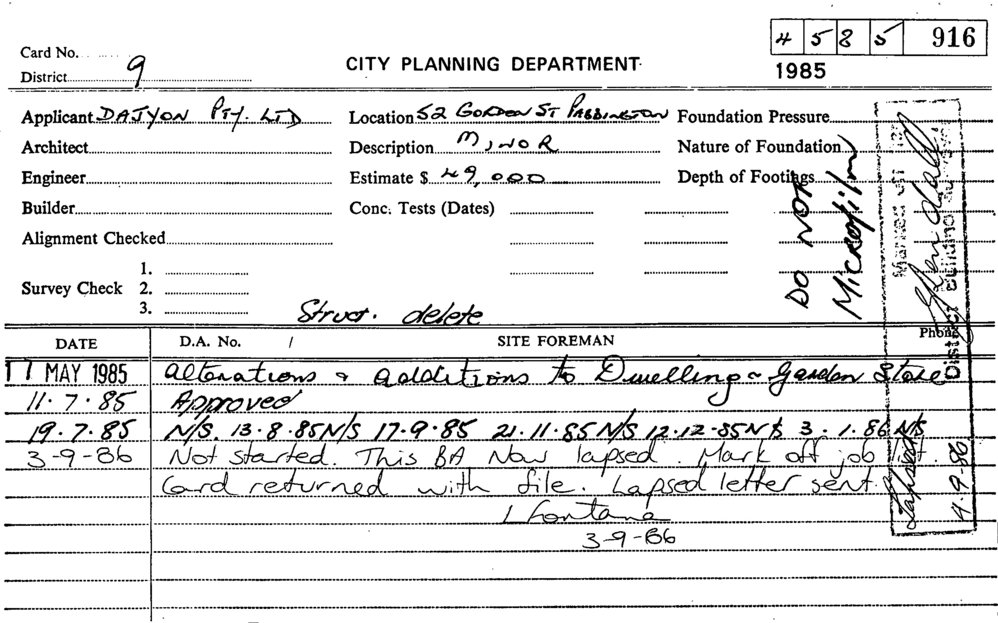 4 5 8 5 916
1985
Card No.
District 9
CITY PLANNING DEPARTMENT
Applicant DAJYON PTY. LTD
Location 52 GORDON ST PADDINGTON
Foundation Pressure
Architect
Description MINOR
Nature of Foundation
Engineer
Estimate $ 49,000
Depth of Footings
Builder
Conc. Tests (Dates)
Alignment Checked
Survey Check
1.
2.
3.
Struct. delete
DO NOT
Microfilm
Marked off
District Building
Lapsed
4.9.86
DATE
D.A. No. /
SITE FOREMAN
Phone
17 MAY 1985 Alterations & additions to Dwelling & Garden Store
11.7.85 Approved
19.7.85 N/S. 13.8.85 N/S 17.9.85 21.11.85 N/S 12.12.85 N/S 3.1.86 N/S
3-9-86 Not started. This BA Now lapsed. Mark off job list.
Card returned with file. Lapsed letter sent.
I Fontana
3-9-86